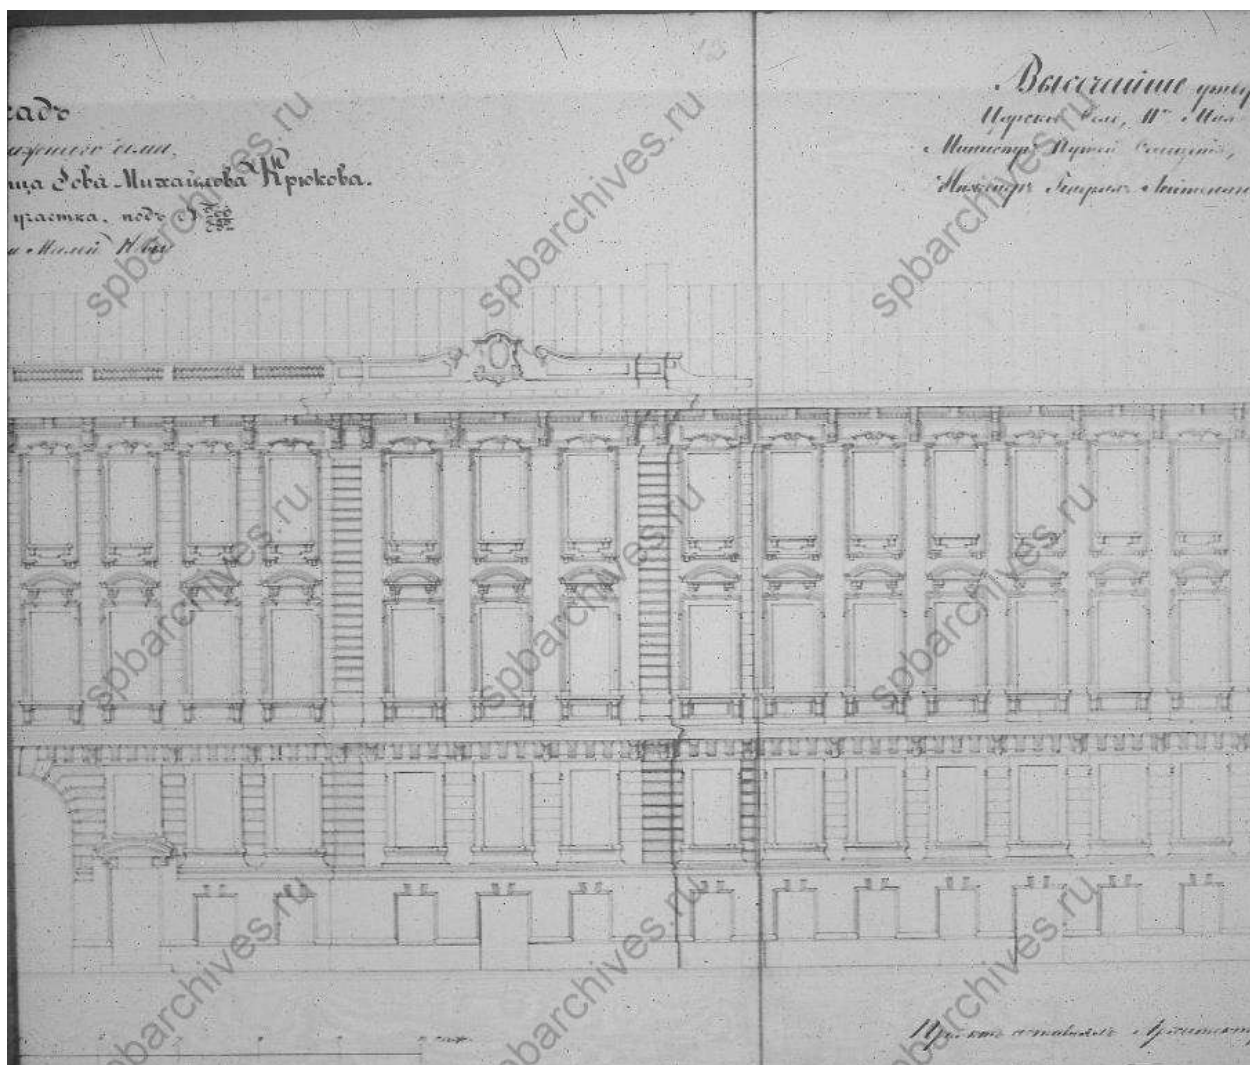 садъ
ща Іова Михайлова Крюкова.
участка, подъ №
и Малой Невы
Высочайше утвер
Царское Село, 11го Мая
Министръ Путей Сообщенія,
Инженеръ Генералъ Лейтенант
Проектъ составлялъ Архитекторъ
spbarchives.ru
spbarchives.ru
spbarchives.ru
spbarchives.ru
spbarchives.ru
spbarchives.ru
spbarchives.ru
spbarchives.ru
spbarchives.ru